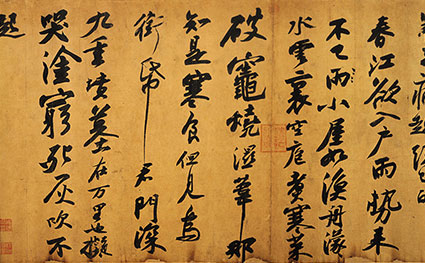 病起
春江欲入戶雨勢來
不已雨小屋如漁舟濛
水雲裏空庖煮寒菜
破竈燒濕葦那
知是寒食但見烏
銜帋君門深
九重墳墓在万里也擬
哭塗窮死灰吹不
起